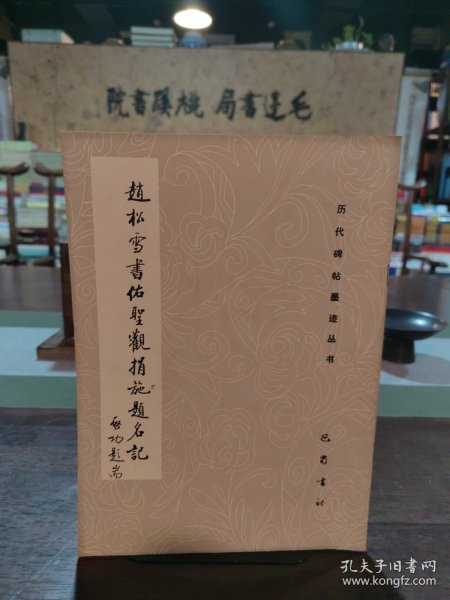 毛边书局 桃蹊書院
趙松雪書佑聖觀捐施題名記
啓功題耑
历代碑帖墨迹丛书
巴蜀書社
孔夫子旧书网
www.kongfz.com